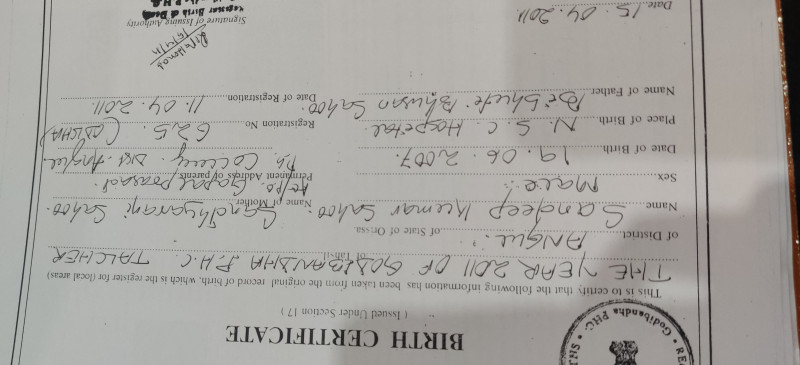 BIRTH CERTIFICATE
( Issued Under Section 17 )
This is to certify that the following information has been taken from the original record of birth, which is the register for (local areas)
THE YEAR 2011 OF GODIBANDHA P.H.C. TALCHER
of Tahasil
of District ANGUL of State of Orissa
Name Sandeep Kumar Sahoo Name of Mother Sandhyarani Sahoo
Sex Male Permanent Address of parents At/po. Gopal prasad
Po. Colliery Dist-Angul
Date of Birth 19.06.2007 (ODISHA)
Place of Birth N.S.C. Hospital Registration No 625
Name of Father Bibhuti Bhusan Sahoo Date of Registration 11.04.2011
Date 15.04.2011 Signature of Issuing Authority
15/4/11
Registrar Birth & Death
Godibandha PHC